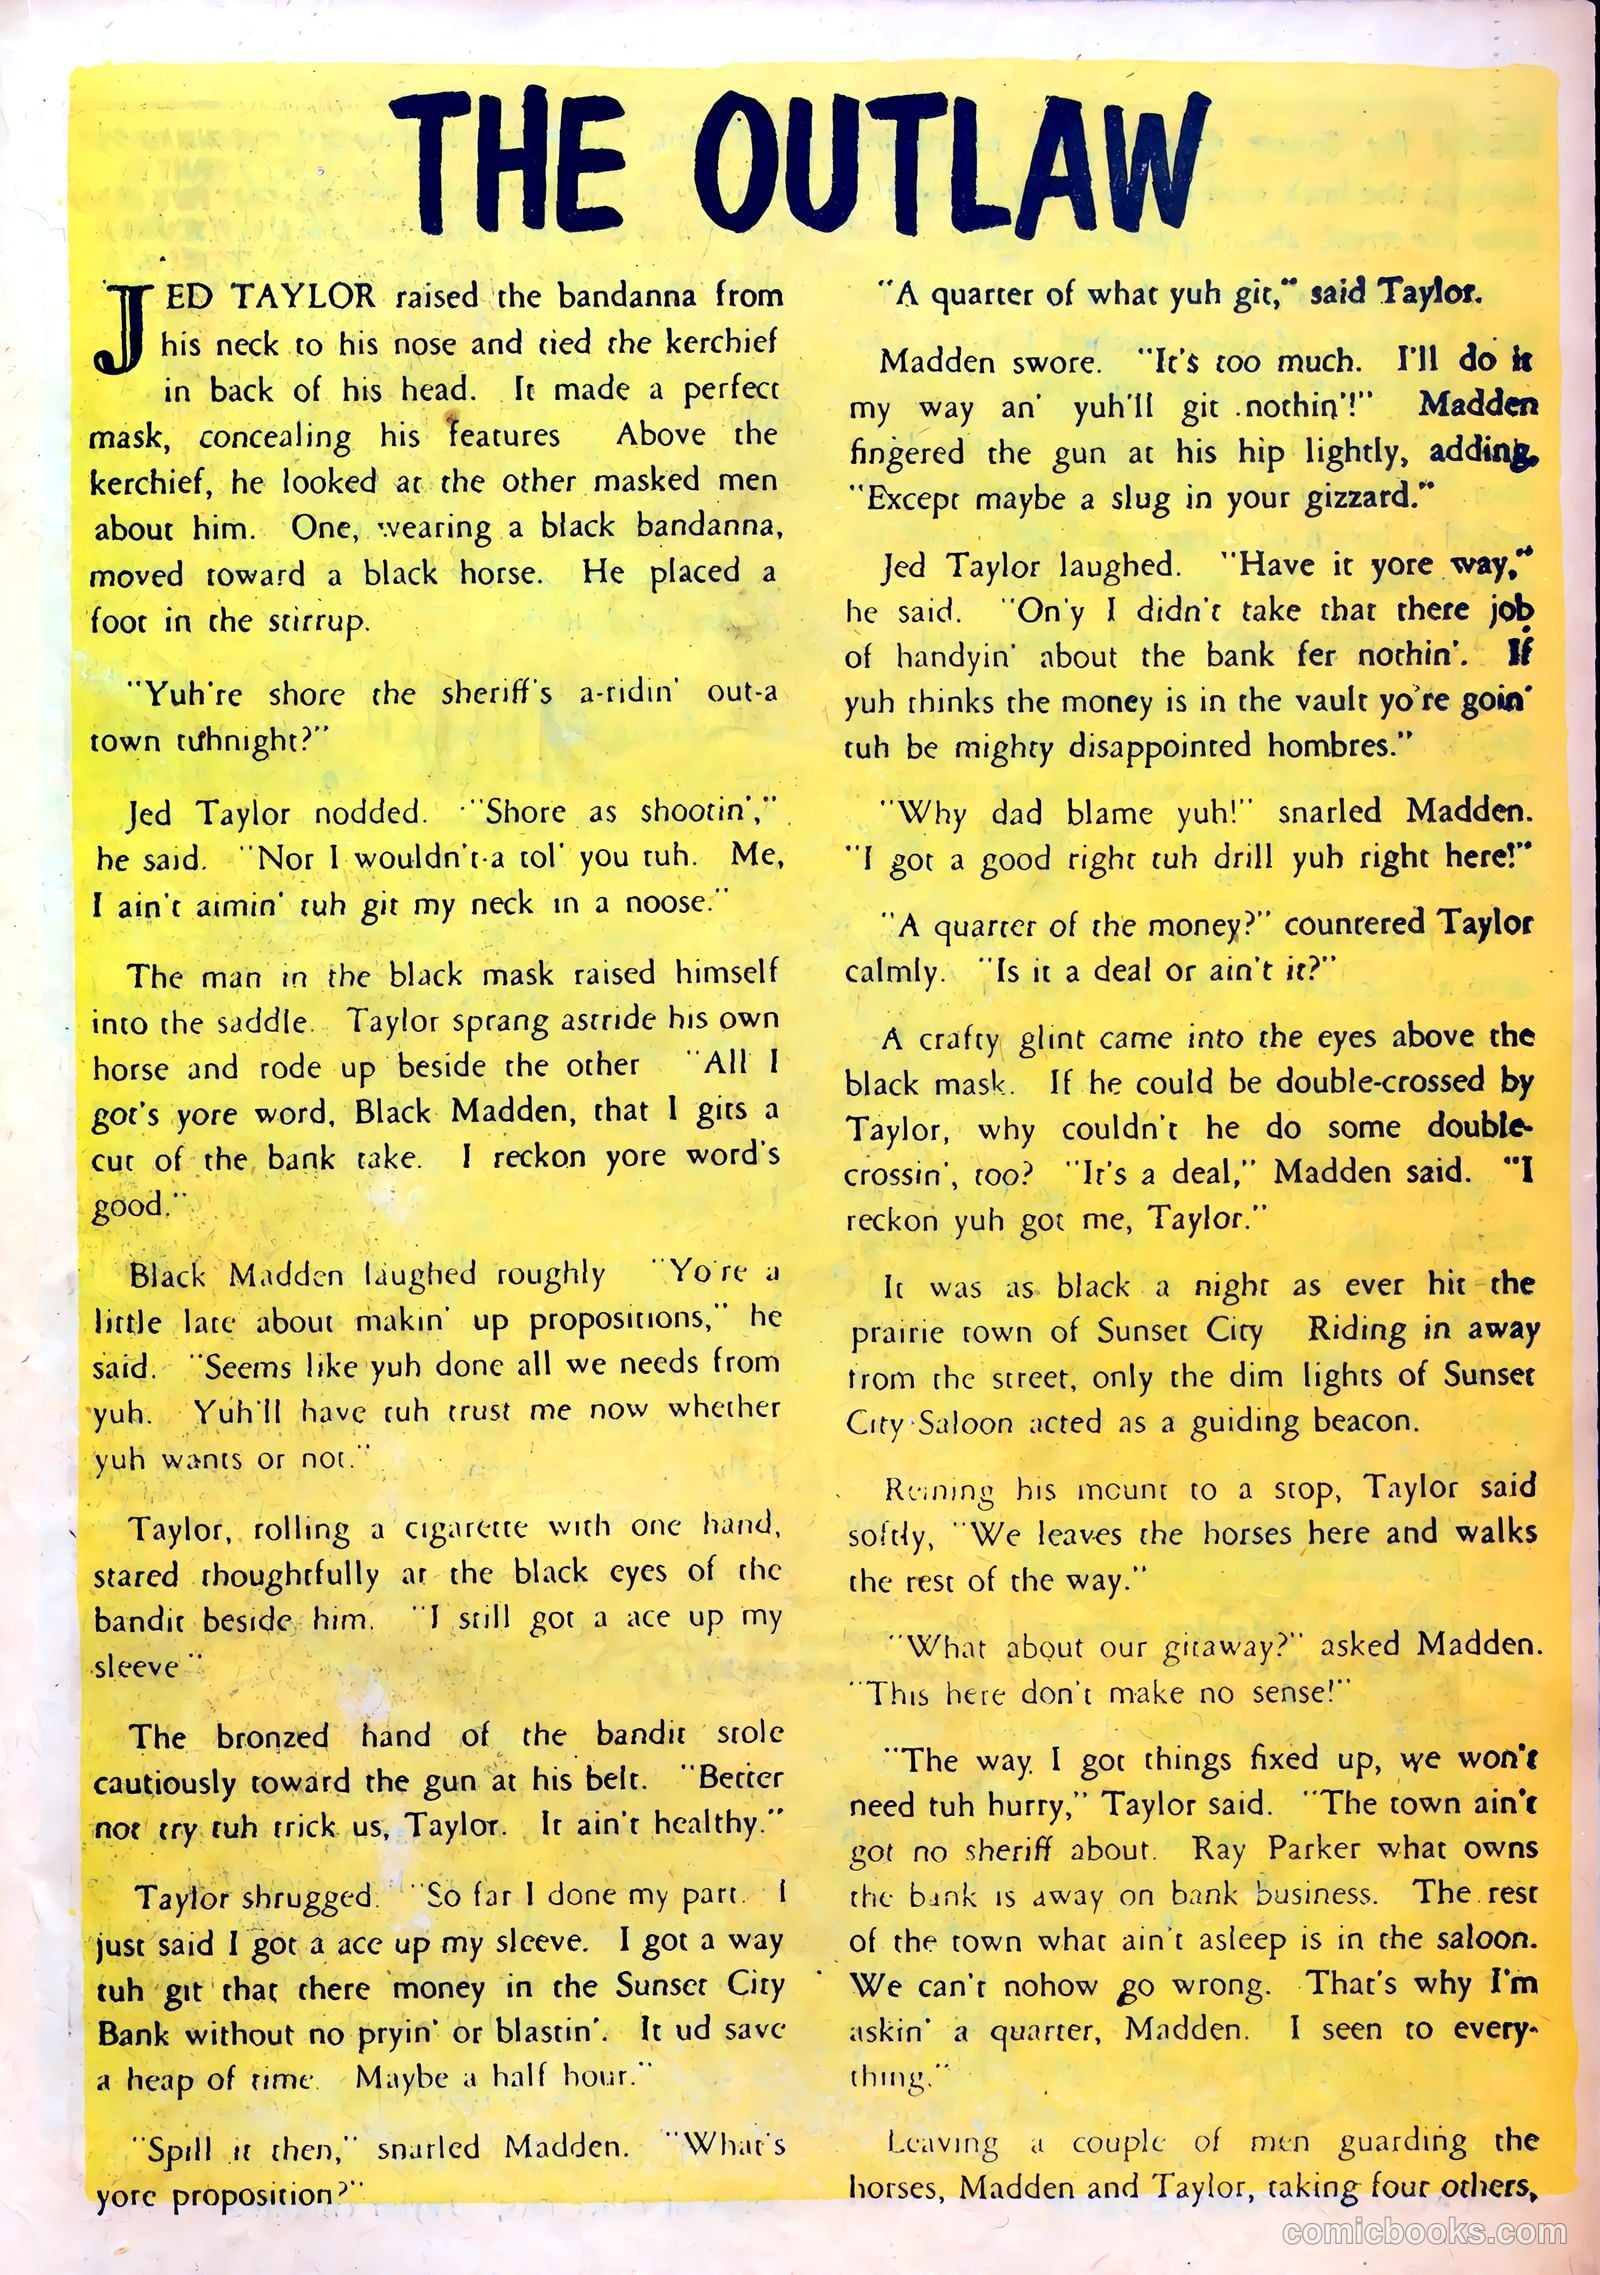 THE OUTLAW
JED TAYLOR raised the bandanna from
his neck to his nose and tied the kerchief
in back of his head. It made a perfect
mask, concealing his features Above the
kerchief, he looked at the other masked men
about him. One, wearing a black bandanna,
moved toward a black horse. He placed a
foot in the stirrup.
"Yuh're shore the sheriff's a-ridin' out-a
town tuhnight?"
Jed Taylor nodded. "Shore as shootin',"
he said. "Nor I wouldn't-a tol' you tuh. Me,
I ain't aimin' tuh git my neck in a noose."
The man in the black mask raised himself
into the saddle. Taylor sprang astride his own
horse and rode up beside the other "All I
got's yore word, Black Madden, that I gits a
cut of the bank take. I reckon yore word's
good."
Black Madden laughed roughly "Yo're a
little late about makin' up propositions," he
said. "Seems like yuh done all we needs from
yuh. Yuh'll have tuh trust me now whether
yuh wants or not."
Taylor, rolling a cigarette with one hand,
stared thoughtfully at the black eyes of the
bandit beside him. "I still got a ace up my
sleeve"
The bronzed hand of the bandit stole
cautiously toward the gun at his belt. "Better
not try tuh trick us, Taylor. It ain't healthy."
Taylor shrugged. "So far I done my part. I
just said I got a ace up my sleeve. I got a way
tuh git that there money in the Sunset City
Bank without no pryin' or blastin'. It ud save
a heap of time. Maybe a half hour."
"Spill it then," snarled Madden. "What's
yore proposition?"
"A quarter of what yuh git," said Taylor.
Madden swore. "It's too much. I'll do it
my way an' yuh'll git nothin'!" Madden
fingered the gun at his hip lightly, adding,
"Except maybe a slug in your gizzard."
Jed Taylor laughed. "Have it yore way,"
he said. "On'y I didn't take that there job
of handyin' about the bank fer nothin'. If
yuh thinks the money is in the vault yo're goin'
tuh be mighty disappointed hombres."
"Why dad blame yuh!" snarled Madden.
"I got a good right tuh drill yuh right here!"
"A quarter of the money?" countered Taylor
calmly. "Is it a deal or ain't it?"
A crafty glint came into the eyes above the
black mask. If he could be double-crossed by
Taylor, why couldn't he do some double-
crossin', too? "It's a deal," Madden said. "I
reckon yuh got me, Taylor."
It was as black a night as ever hit the
prairie town of Sunset City Riding in away
from the street, only the dim lights of Sunset
City Saloon acted as a guiding beacon.
Reining his mount to a stop, Taylor said
softly, "We leaves the horses here and walks
the rest of the way."
"What about our gitaway?" asked Madden.
"This here don't make no sense!"
"The way I got things fixed up, we won't
need tuh hurry," Taylor said. "The town ain't
got no sheriff about. Ray Parker what owns
the bank is away on bank business. The rest
of the town what ain't asleep is in the saloon.
We can't nohow go wrong. That's why I'm
askin' a quarter, Madden. I seen to every-
thing."
Leaving a couple of men guarding the
horses, Madden and Taylor, taking four others,
comicbooks.com